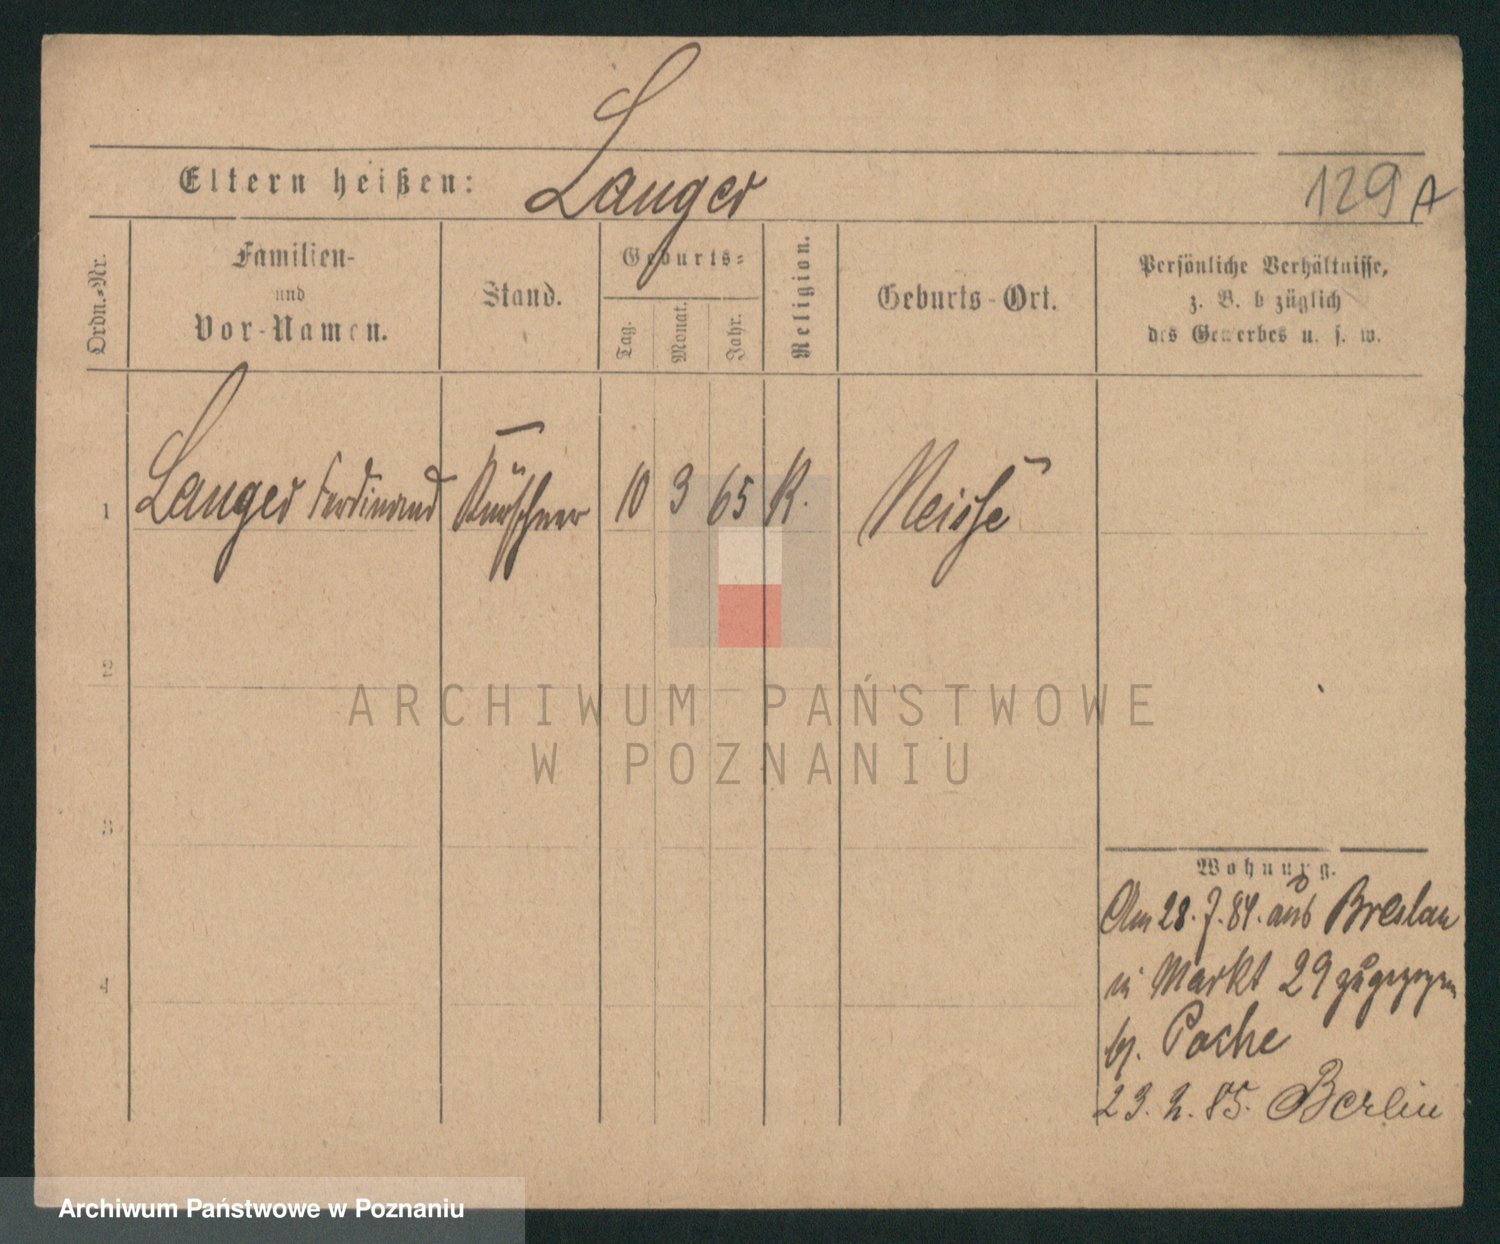 Langer
Eltern heißen:
129 A
Ordn.-Nr.
Familien-
und
Vor-Namen.
Stand.
Geburts-
Tag.
Monat.
Jahr.
Religion.
Geburts-Ort.
Persönliche Verhältnisse,
z. B. bezüglich
des Gewerbes u. s. w.
1 Langer Ferdinand Kürschner 10 3 65 K. Neisse
2
ARCHIWUM PAŃSTWOWE
W POZNANIU
3
Wohnung.
Am 28.7.84. aus Breslau
in Markt 29 zugezogen
4
b/. Poche
23. 2. 85. Berlin
Archiwum Państwowe w Poznaniu